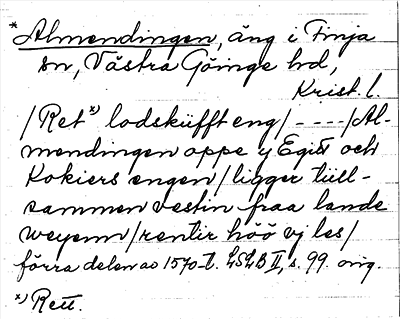 * Almendingen, äng i Finja
sn, Västra Göinge hd,
Krist. l.
/Ret x) lodskifft eng/ ----/Al-
mendingen oppe y Egist och
Kokiers engen/ligger tiill-
sammen vestin fraa lande
weyenn/rentir höö vj les/
förra delen av 1570-t. LSLB II, s. 99. orig.
x) Rett.